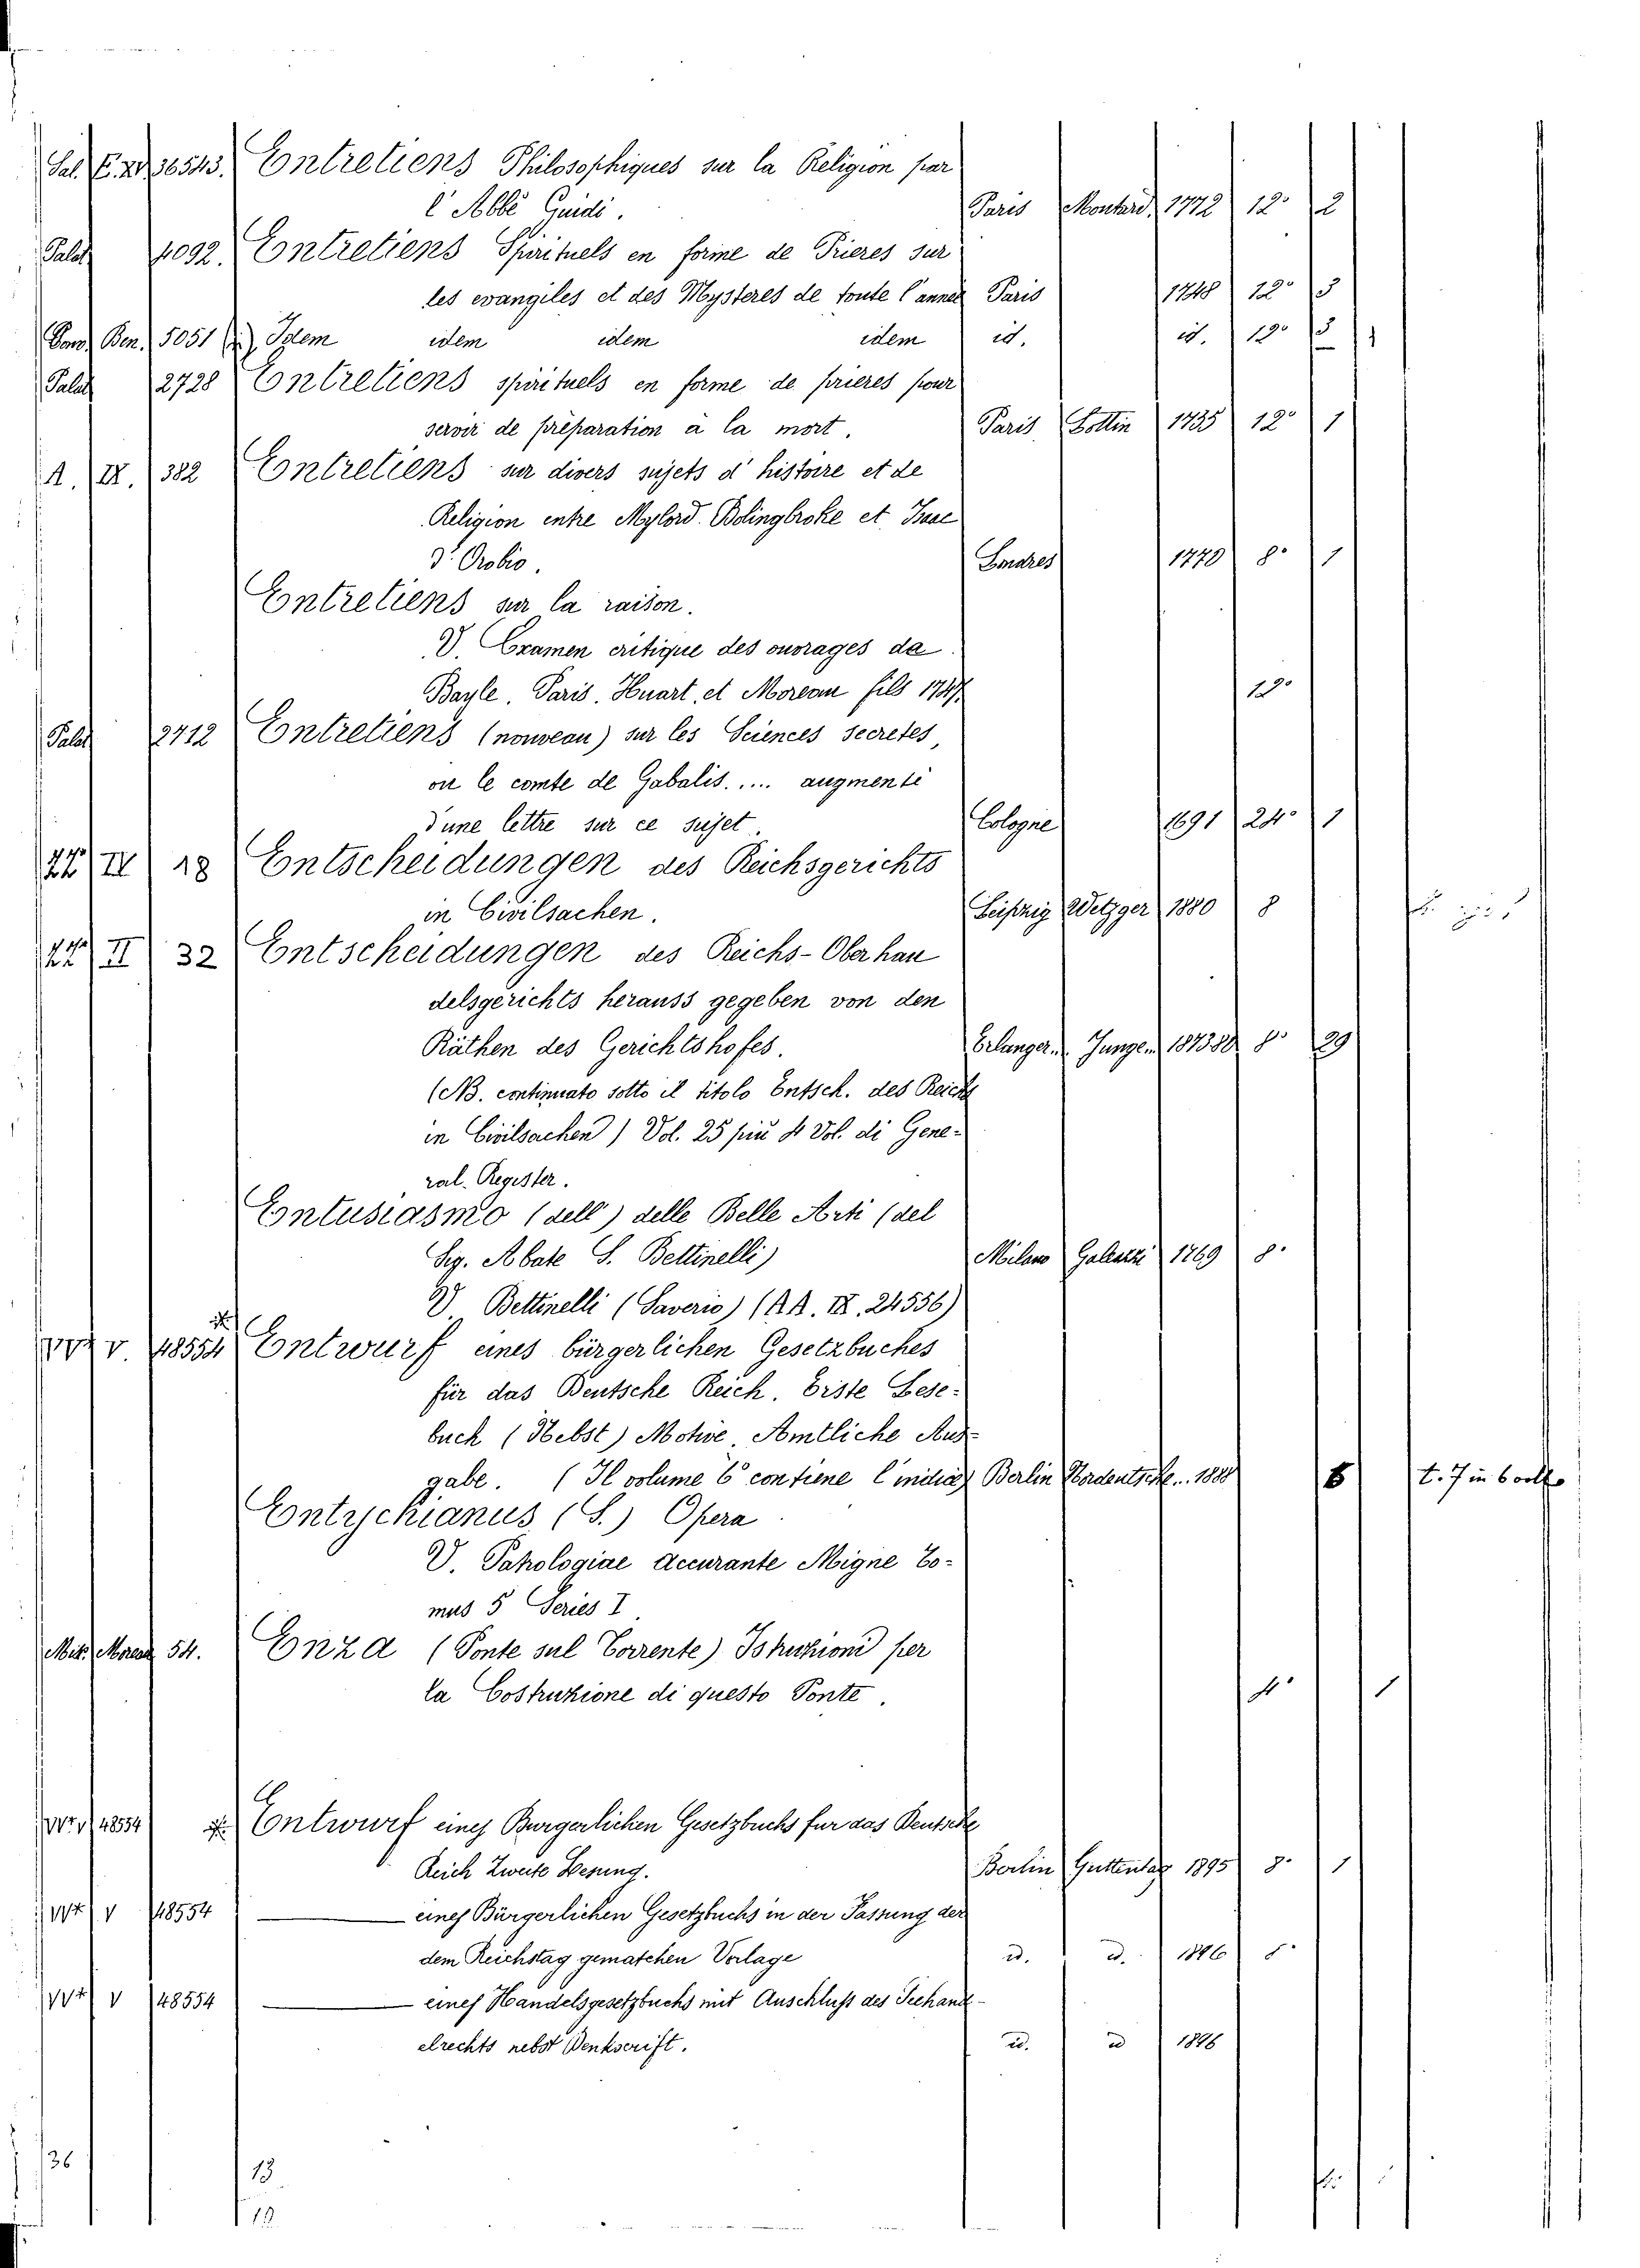 Sal. E. XI. 36543. Entretiens Philosophiques sur la Religion par
l'Abbé Guidi. Paris Montard, 1772 12° 2
Palat 4092. Entretiens Spirituels en forme de Prieres sur
les evangiles et des Mysteres de toute l'annee Paris 1748 12° 3
Ben. 5051 Idem idem idem idem id. id. 12° 3 1
Palat 2728 Entretiens spirituels en forme de prieres pour
servir de préparation à la mort. Paris Lottin 1735 12° 1
A. IX. 382 Entretiens sur divers sujets d'histoire et de
Religion entre Mylord Bolingbroke et Isac
d'Orobio. Londres 1770 8° 1
Entretiens sur la raison.
V. Examen critique des ouvrages de
Bayle. Paris. Huart et Moreau fils 1747. 12°
Palat 2712 Entretiens (nouveau) sur les Sciences secretes,
ou le comte de Gabalis..... augmenté
d'une lettre sur ce sujet. Cologne 1691 24° 1
22 IV 18 Entscheidungen des Reichsgerichts
in Civilsachen. Leipzig Wetzger 1880 8
22 II 32 Entscheidungen des Reichs-Oberhan
delsgerichts herauss gegeben von den
Räthen des Gerichtshofes. Erlangen. Jungen 187380 8° 29
(NB. continuato sotto il titolo Entsch. des Reichs
in Civilsachen) Vol. 25 più 4 Vol. di Gene-
ral-Register.
Entusiasmo (dell') delle Belle Arti (del
Sig. Abate S. Bettinelli) Milano Galeazzi 1769 8°
V. Bettinelli (Saverio) (AA. IX. 24556)
V 48554 Entwurf eines bürgerlichen Gesetzbuches
für das Deutsche Reich. Erste Lese-
buch (Nebst) Motive Amtliche Aus-
gabe. (Il volume 6° contiene l'indice) Berlin Nordentsche.. 1888 6 t. 7 in 6 voll.
Entychianus (S.) Opera
V. Patrologiae accurante Migne To-
mus 5 Series I
Mss. Morena 54. Enza (Ponte sul Torrente) Istruzioni per
la Costruzione di questo Ponte. 4° 1
V 48554 Entwurf eines Burgerlichen Gesetzbuchs fur das Deutsche
Reich Zweite Lesung. Berlin Guttentag 1895 8° 1
V 48554 — eines Bürgerlichen Gesetzbuchs in der Fassung der
dem Reichstag gematchen Vorlage id. id. 1896 8°
V 48554 — eines Handelsgesetzbuchs mit Auschluss des Seehand-
elrechts nebst Denkscrift. id. id 1896
36 13
19